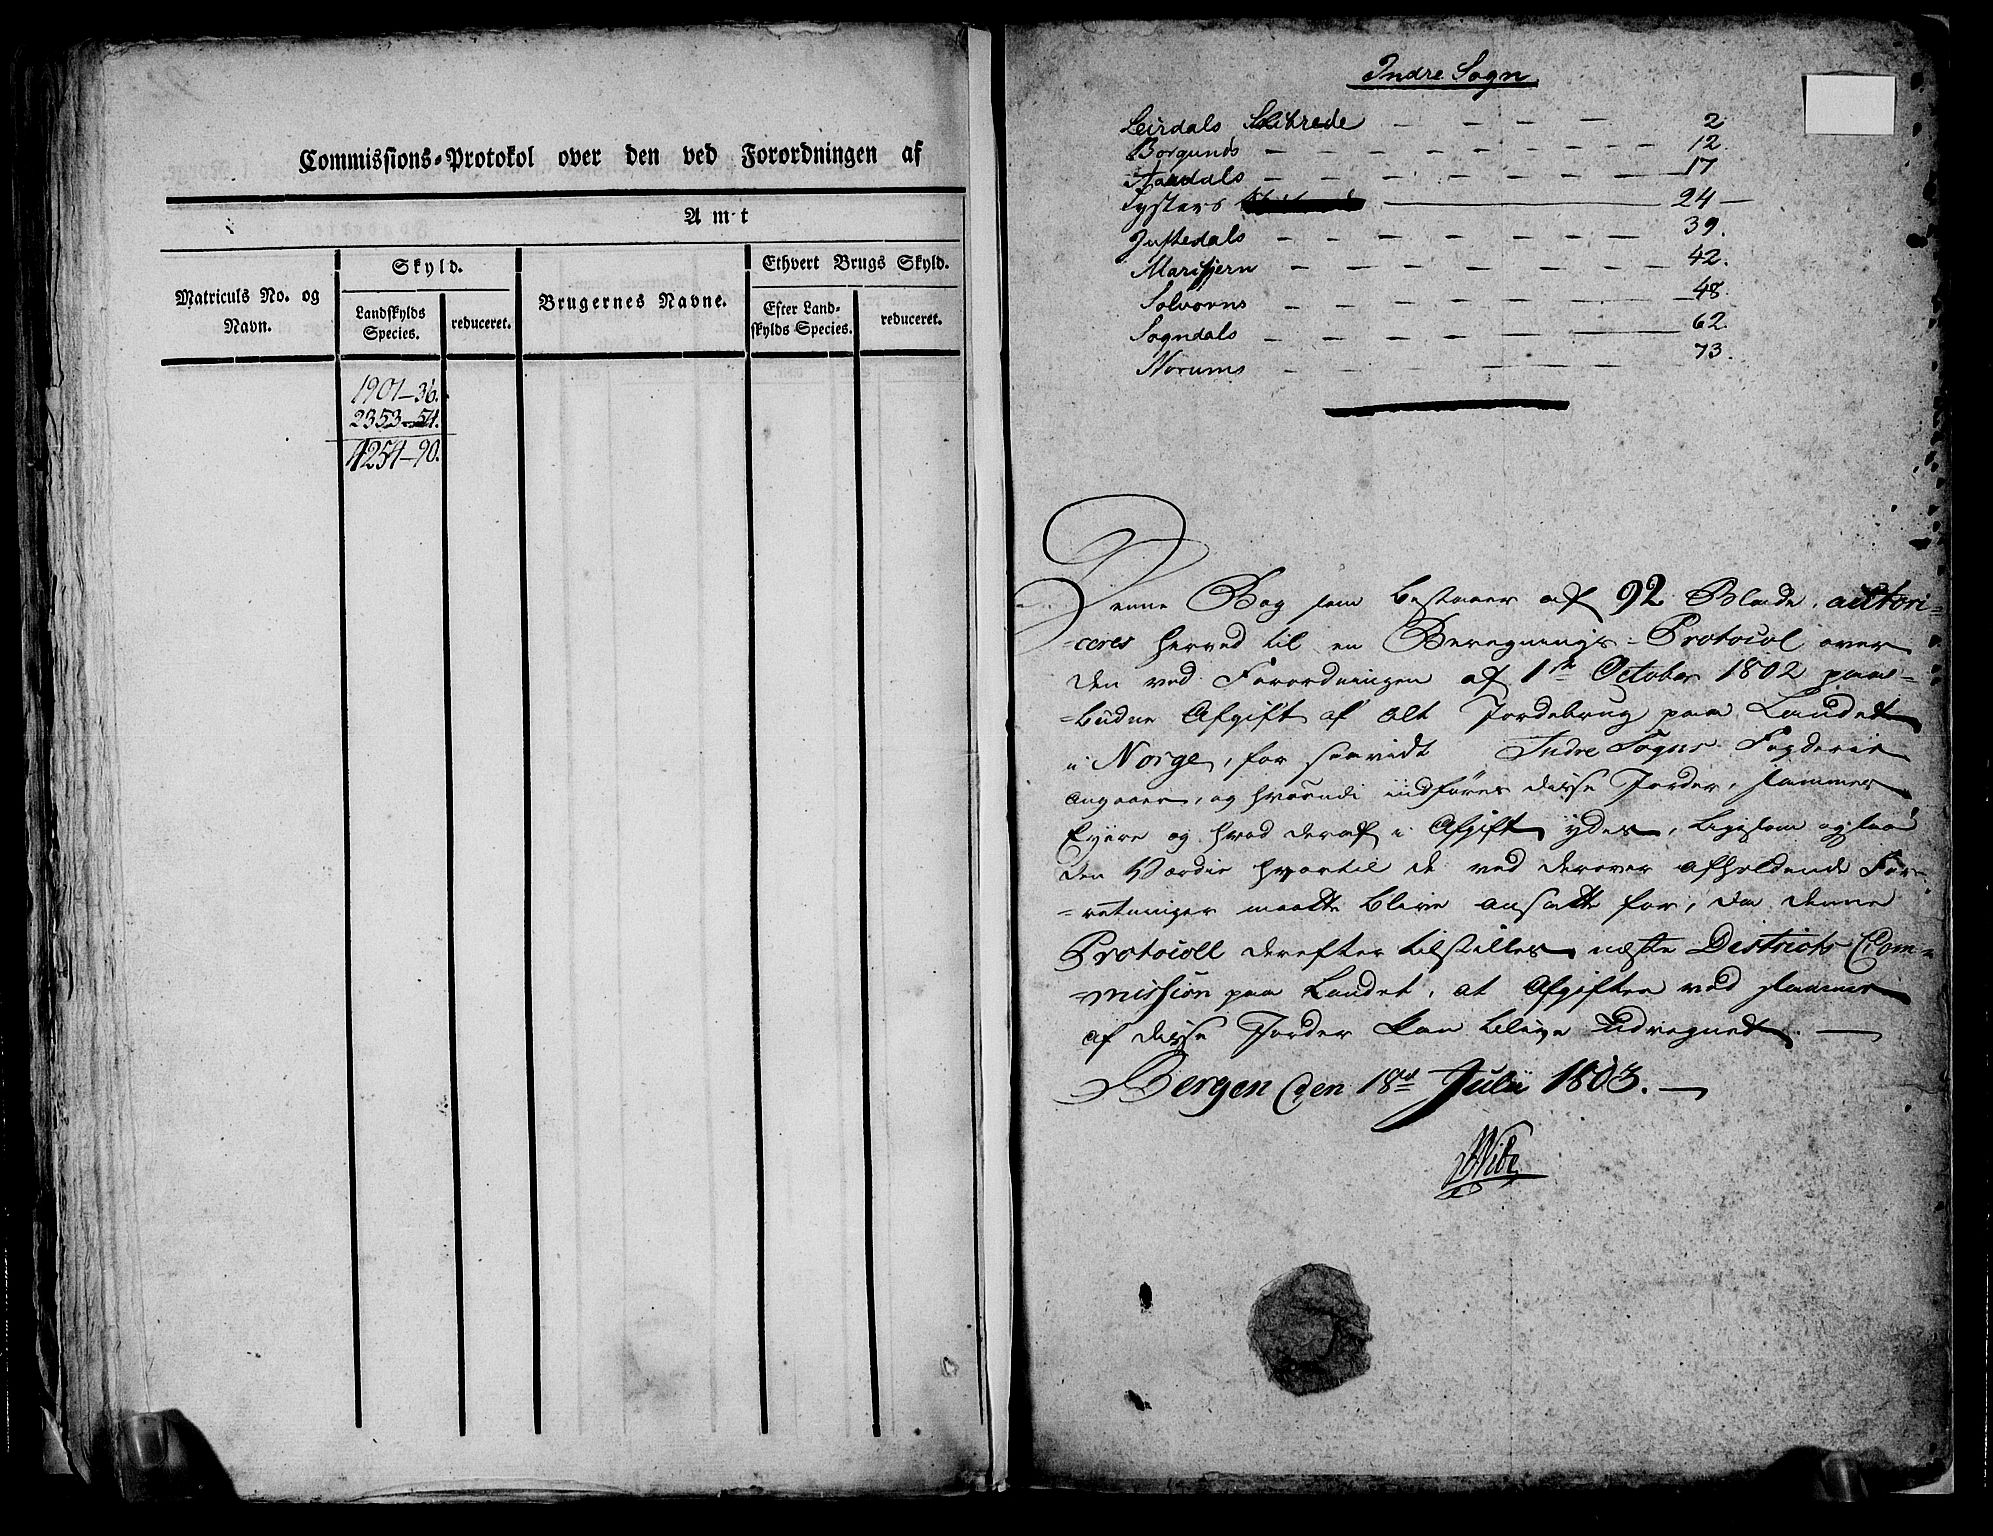 Commissions-Protokol over den ved Forordningen af
Amt
Matriculs No. og Navn.
Skyld.
Landskylds Species.
reduceret.
Brugernes Navne.
Ethvert Brugs Skyld.
Efter Landskylds Species.
reduceret.
1901-36.
2353-54.
4254-90.
Indre Sogn
Leirdals Skibrede - - - - 2
Borgunds - - - - - - - - 12.
Aardals - - - - - - - - 17
Lysters 24 -
Justedals - - - - - - - - 39.
Marifjern - - - - - - - - 42.
Solvorns - - - - - - - - 48.
Sogndals - - - - - - - - 62.
Norums - - - - - - - - 73.
Denne Bog som bestaaer af 92 Blade, autori-
-ceres herved til en Beregnings-Protocol over
den ved Forordningen af 1ste October 1802 paa-
-budne Afgift af alt Jordebrug paa Landet
i Norge, for saavidt Indre Sogns Fogderie
angaaer, og hvorudi indføres disse Jorder, sammes
Eyere og hvad deraf i Afgift ydes, ligesom ogsaa
den Værdie hvortil de ved derover afholdende For-
-retninger maatte blive ansatte for, da denne
Protocoll derefter tilstilles næste Districts Com-
-mission paa Landet, at Afgiften ved samme
af disse Jorder kan blive udregnet. -
Bergen den 18de Julii 1803. -
Wibe